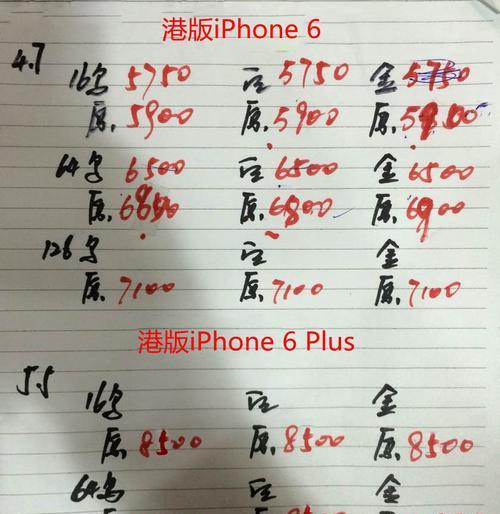 港版iPhone 6
4.7 16鸟 5750 白 5750 金 5750
原. 5900 原. 5900 原. 5900
64鸟 6500 白 6500 金 6500
原. 原. 6800 原. 6900
128鸟 白 金
原. 7100 原. 7100 原. 7100
港版iPhone 6 Plus
5.5 16鸟 白 金
原. 8500 原. 8500 原. 8500
64鸟 白 金